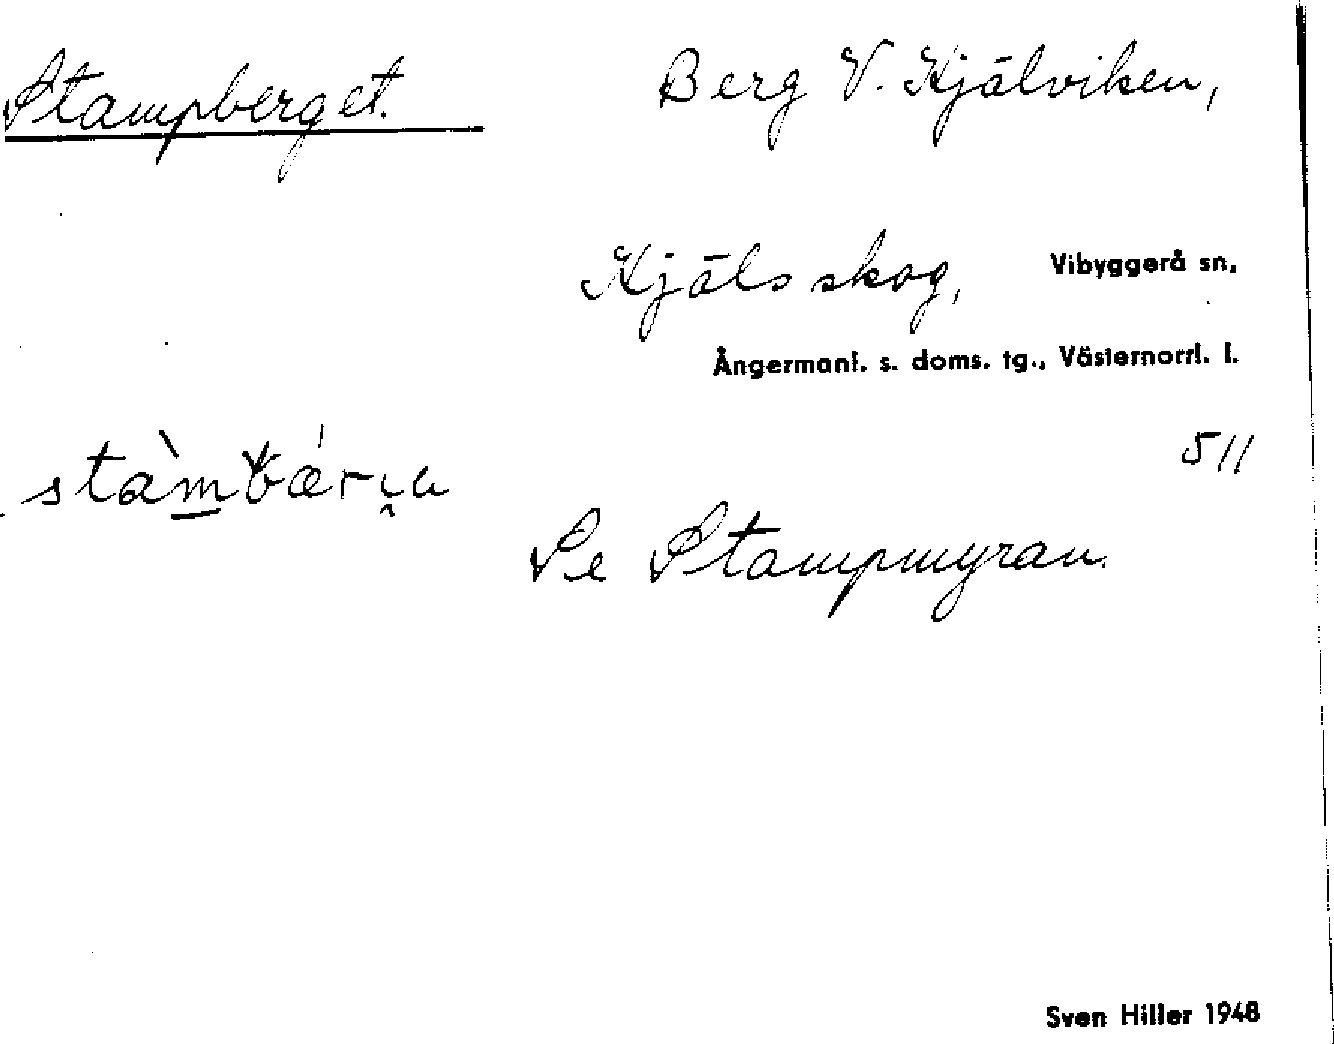 Stampberget. Berg V. Kjälviken,
Kjälsskog, Vibyggerå sn,
Ångermanl. s. doms. tg., Västernorrl. l.
511
Se Stampmyran.
Sven Hiller 1948